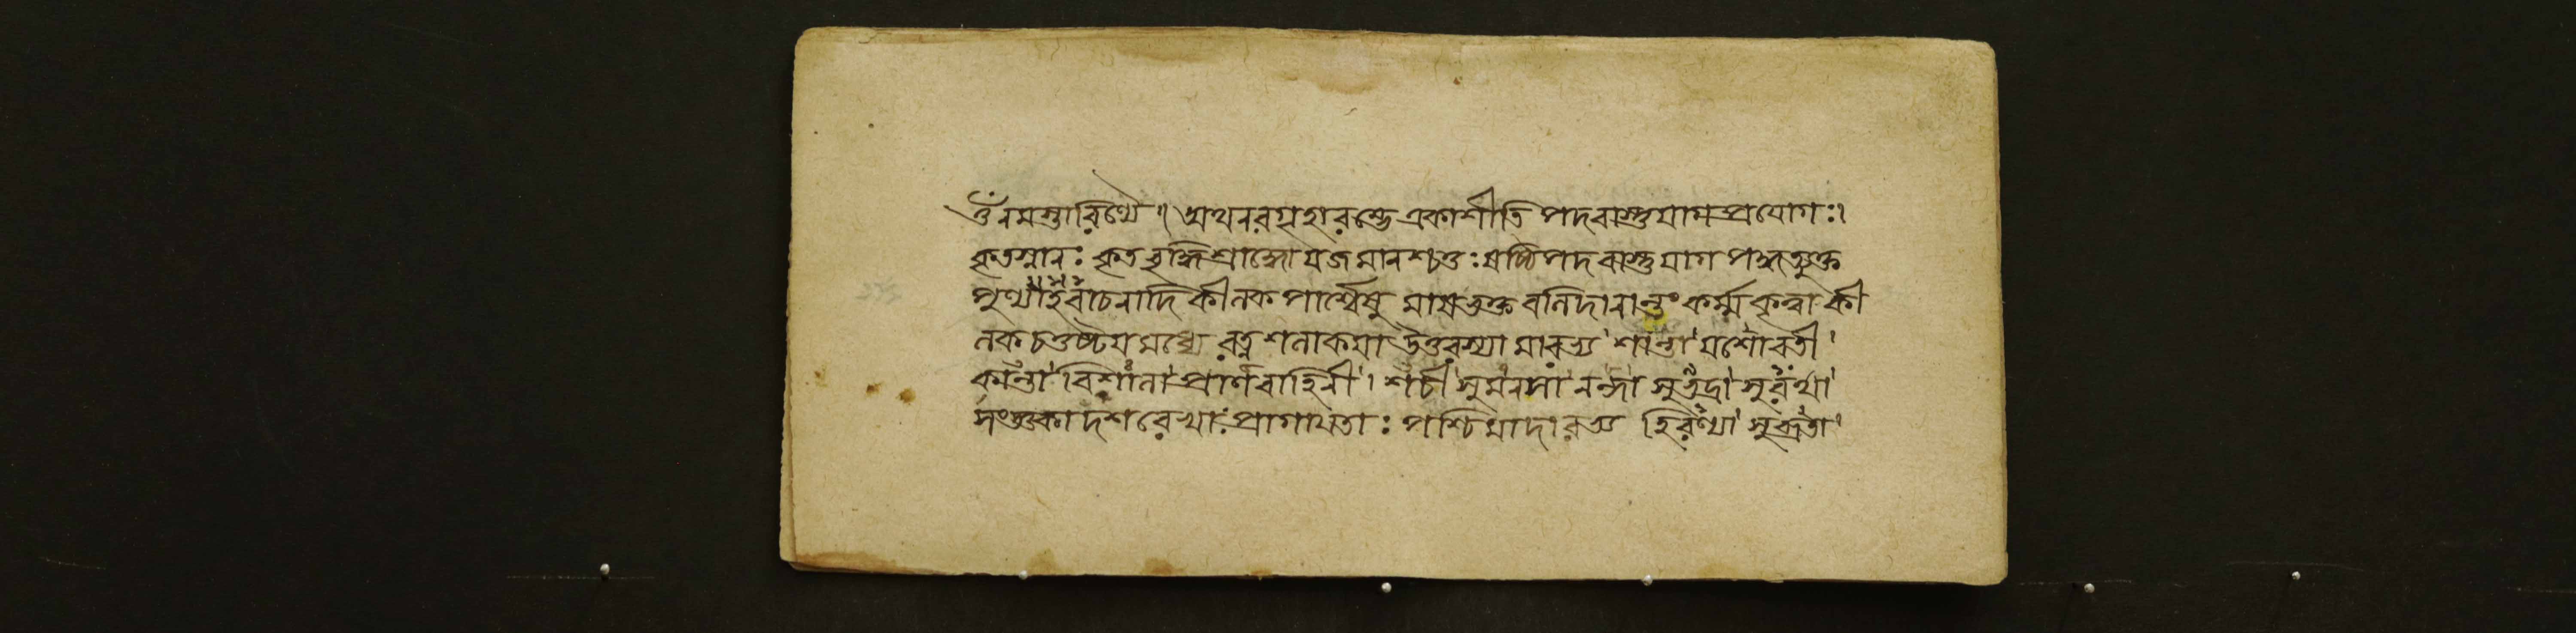 ওঁ নমস্তারিণ্যৈ॥ অথ নবগৃহারম্ভে একাশীতিপদবাস্তুযাগপ্রয়োগঃ।
কৃতস্নানঃ কৃতবৃদ্ধিশ্রাদ্ধো যজমানশ্চতুঃষষ্টিপদবাস্তুযাগপদ্ধত্যুক্ত
পুণ্যাহবাচনাদি কীলকপার্শ্বেষু মাষভক্তবলিদানান্তং কর্ম্ম কৃত্বা কী
লকচতুষ্টয়মধ্যে রত্নশলাকয়া উত্তরস্যামারভ্য শান্তা যশোবতী
কান্তা বিশালা প্রাণবাহিনী। শচী সুমনসা নন্দা সুভদ্রা সুরথা
সংজ্ঞকা দশরেখাঃ প্রাগায়তাঃ পশ্চিমাদারভ্য হিরণ্যা সুব্রতা